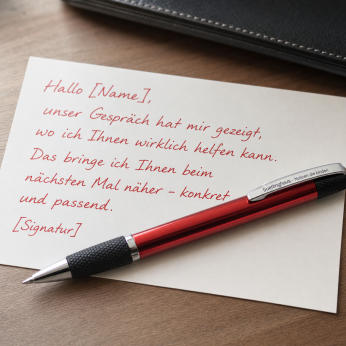 Hallo [Name],
unser Gespräch hat mir gezeigt,
wo ich Ihnen wirklich helfen kann.
Das bringe ich Ihnen beim
nächsten Mal näher – konkret
und passend.
[Signatur]